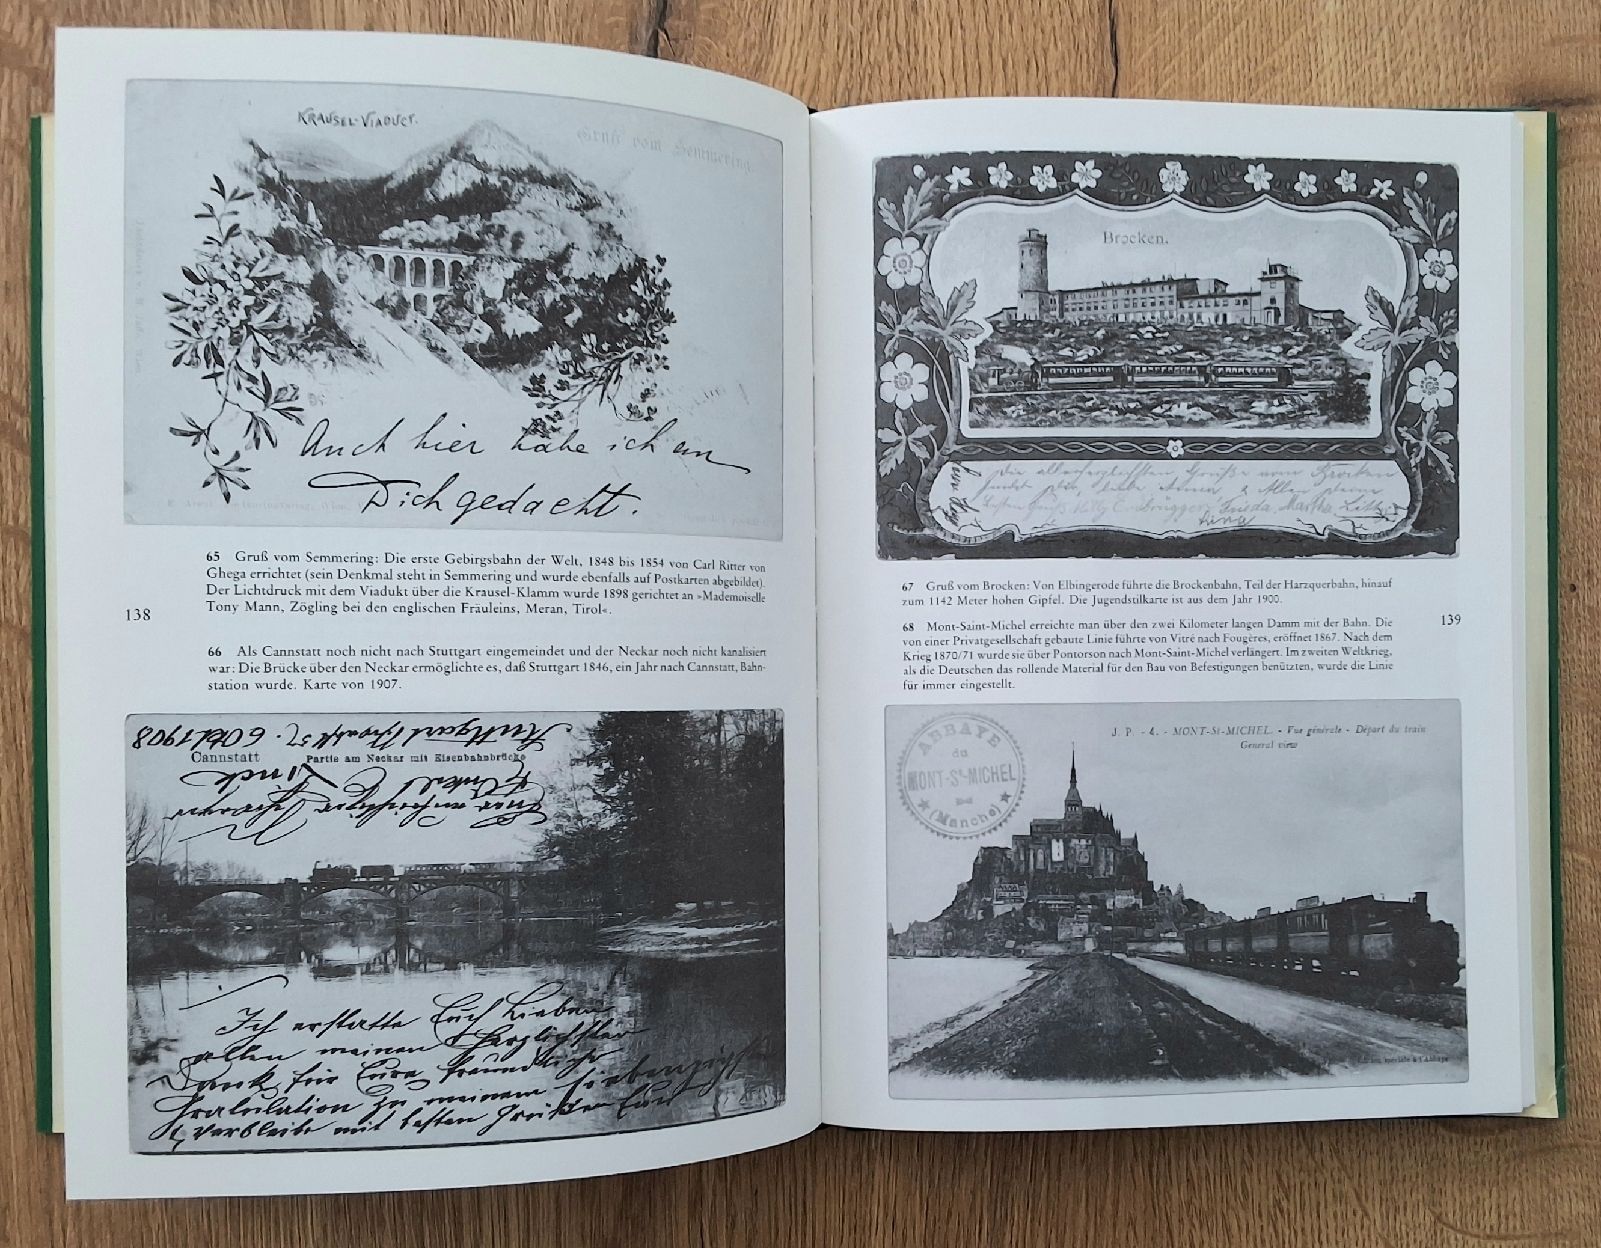 KRAUSEL-VIADUCT.
Gruß vom Semmering.
Auch hier habe ich an
Dich gedacht.
65 Gruß vom Semmering: Die erste Gebirgsbahn der Welt, 1848 bis 1854 von Carl Ritter von
Ghega errichtet (sein Denkmal steht in Semmering und wurde ebenfalls auf Postkarten abgebildet).
Der Lichtdruck mit dem Viadukt über die Krausel-Klamm wurde 1898 gerichtet an »Mademoiselle
Tony Mann, Zögling bei den englischen Fräuleins, Meran, Tirol«.
138
66 Als Cannstatt noch nicht nach Stuttgart eingemeindet und der Neckar noch nicht kanalisiert
war: Die Brücke über den Neckar ermöglichte es, daß Stuttgart 1846, ein Jahr nach Cannstatt, Bahn-
station wurde. Karte von 1907.
Stuttgart 6 Okt 1908
Cannstatt Partie am Neckar mit Eisenbahnbrücke
Ich erstatte Euch Lieben
allen meinen herzlichsten
Dank für Eure freundliche
Gratulation zu meinem siebenzigsten
verbleibe mit besten Grüßen Euer
Brocken.
Die allerherzlichsten Grüße vom Brocken
sendet Dir, liebe Anna
Frieda, Martha,
67 Gruß vom Brocken: Von Elbingerode führte die Brockenbahn, Teil der Harzquerbahn, hinauf
zum 1142 Meter hohen Gipfel. Die Jugendstilkarte ist aus dem Jahr 1900.
68 Mont-Saint-Michel erreichte man über den zwei Kilometer langen Damm mit der Bahn. Die
von einer Privatgesellschaft gebaute Linie führte von Vitré nach Fougères, eröffnet 1867. Nach dem
Krieg 1870/71 wurde sie über Pontorson nach Mont-Saint-Michel verlängert. Im zweiten Weltkrieg,
als die Deutschen das rollende Material für den Bau von Befestigungen benützten, wurde die Linie
für immer eingestellt.
139
ABBAYE
du
MONT-St-MICHEL
(Manche)
J. P. - 4. - MONT-St-MICHEL. - Vue générale - Départ du train
General view